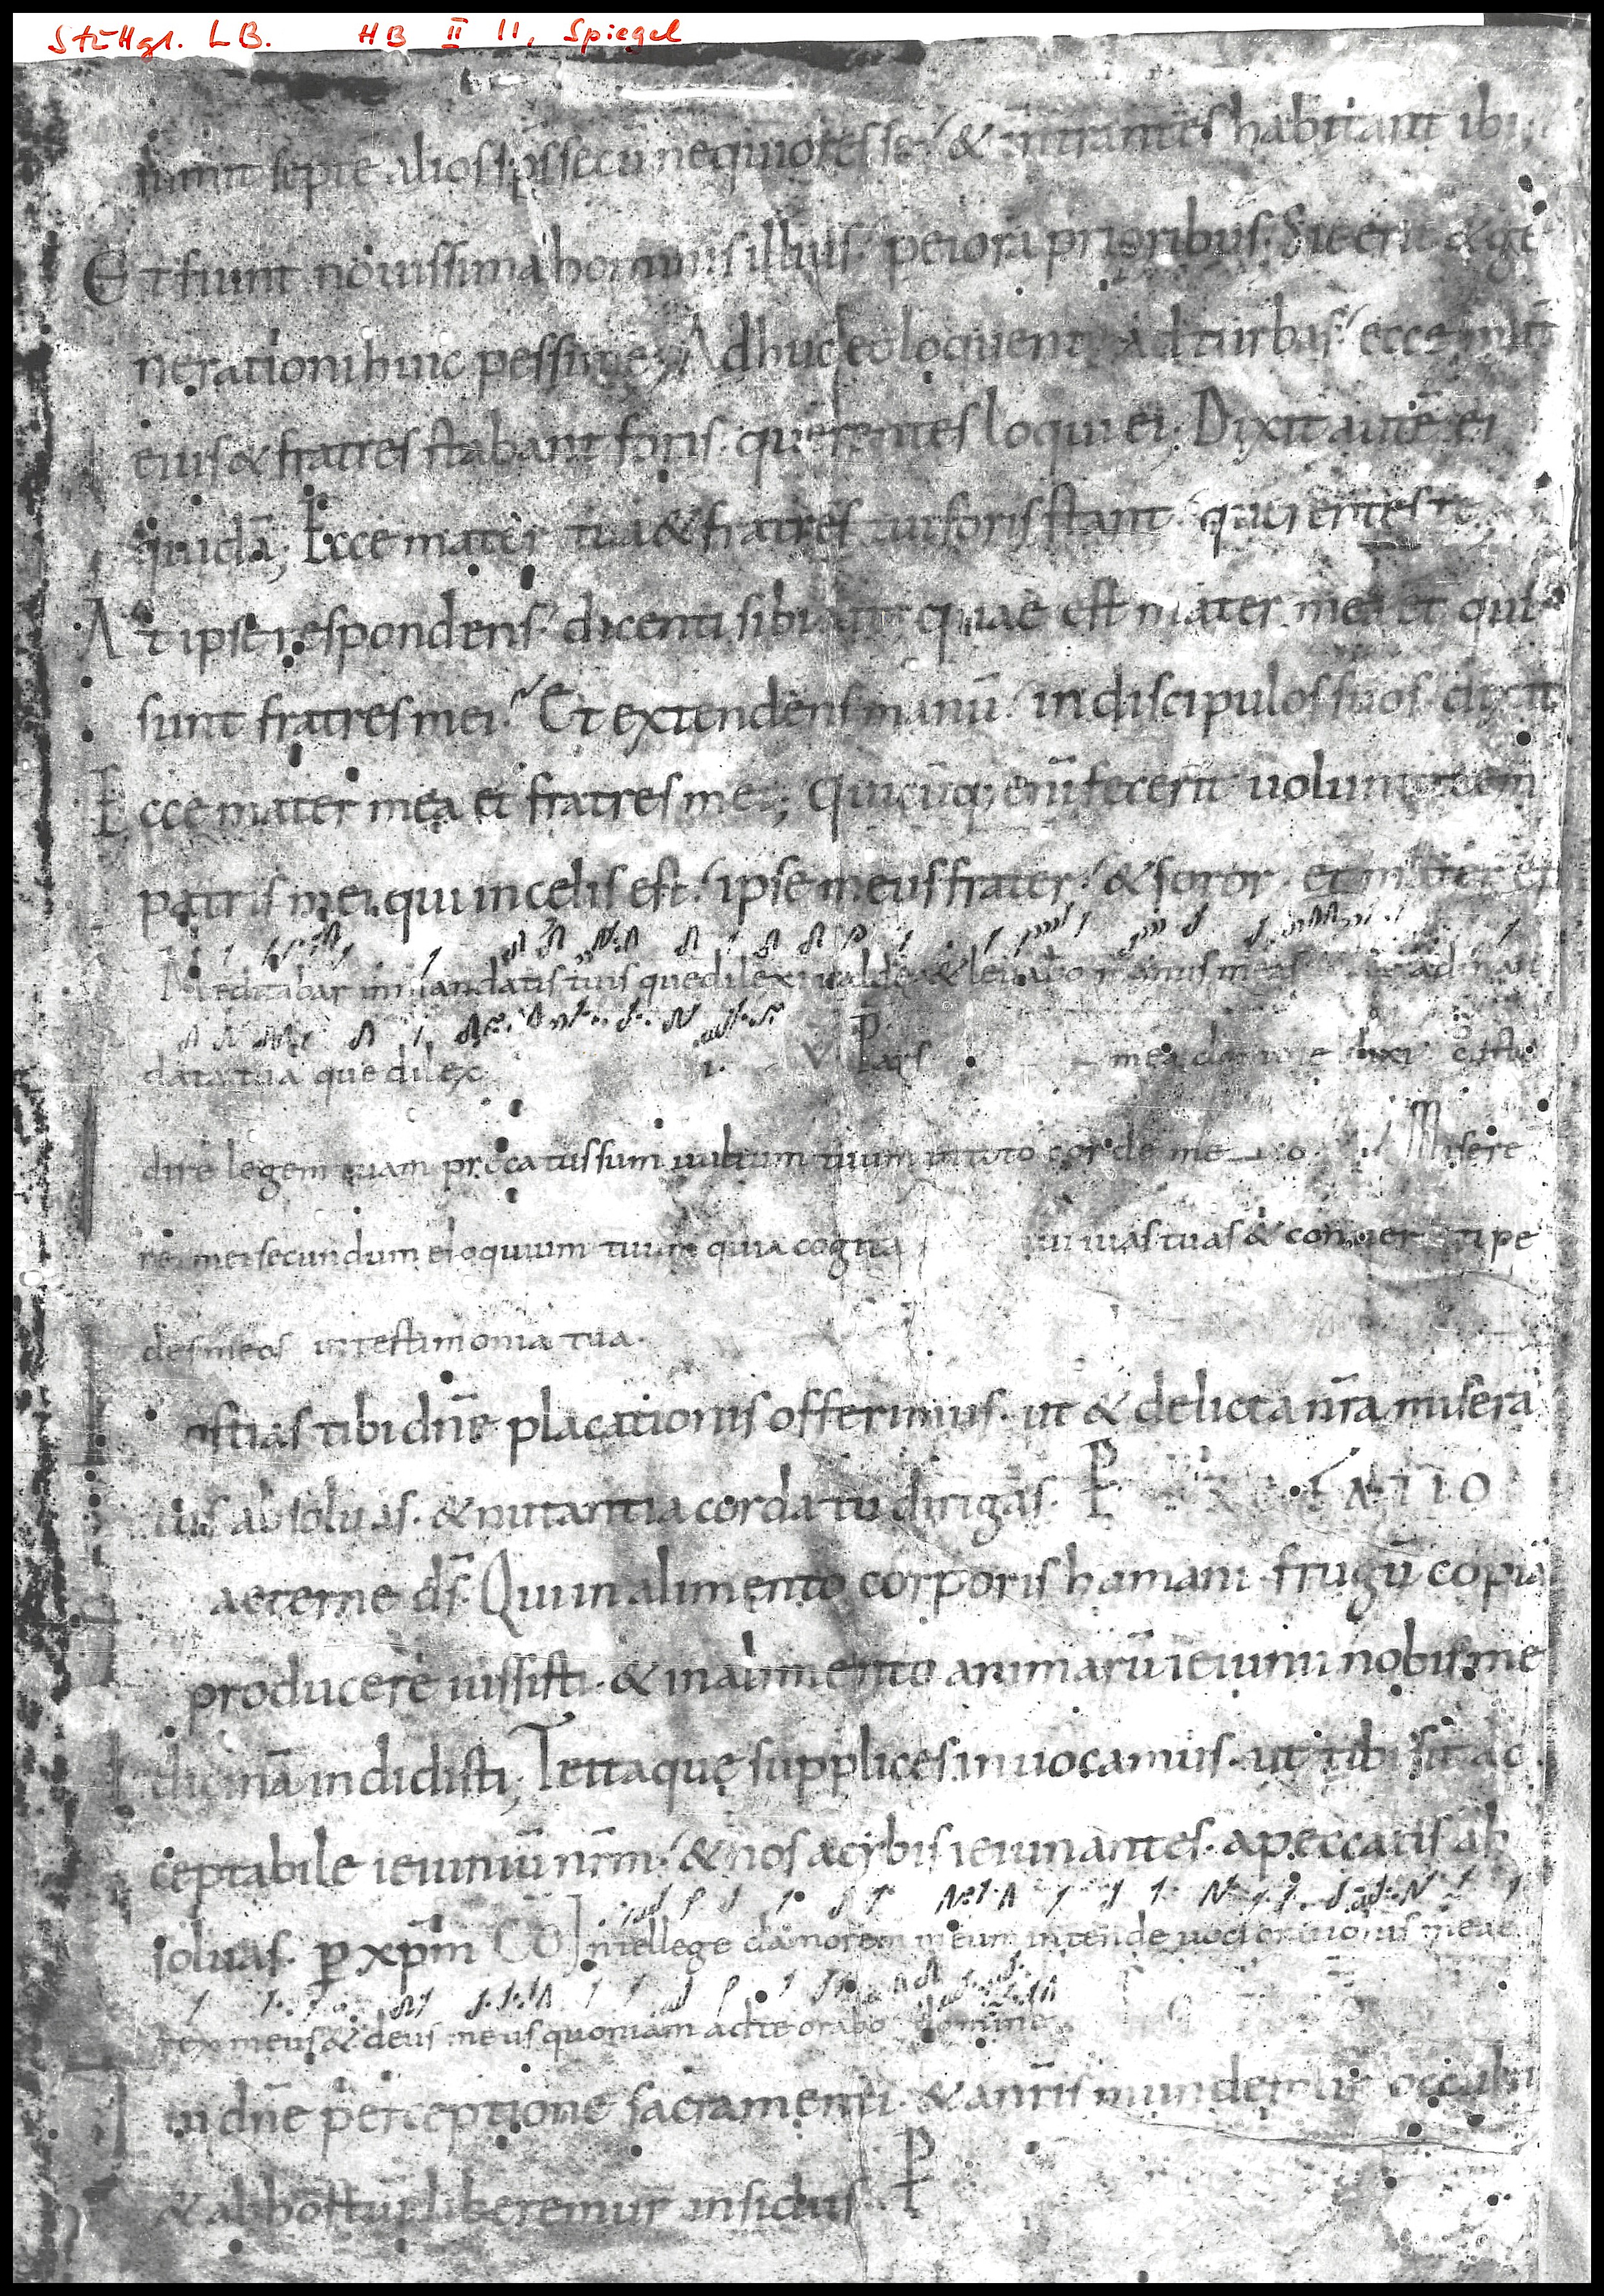 Stuttg. LB. HB II 11, Spiegel
sumit septē alios sps secū nequiores se & intrantes habitant ibi;
Et fiunt nouissima hominis illius peiora prioribus. Sic erit & ge
nerationi huic pessime; Adhuc eo loquente ad turbas ecce mat̄
eius & fratres stabant foris querentes loqui ei. Dixit autē ei
quidā; Ecce mater tua & fratres tui foris stant querentes te;
At ipse respondens dicenti sibi ait quae est mater mea et qui
sunt fratres mei. Et extendens manū in discipulos suos dixit
Ecce mater mea et fratres mei; Quicūq; enī fecerit uoluntatem
patris mei qui in celis est. ipse meus frater & soror et mater ē
Meditabar in mandatis tuis que dilexi ualde & leuabo manus meas ad man
data tua que dilexi V Pars mea domine dixi custo
dire legem tuam precatus sum uultum tuum in toto corde meo Misere
re mei secundum eloquium tuum quia cogita ui uias tuas & conuerti pe
des meos in testimonia tua.
ostias tibi dn̄e placationis offerimus. ut & delicta nr̄a misera
tus absoluas. & nutantia corda tu dirigas. P
aeterne dś. Qui in alimento corporis humani frugū copiā
producere iussisti. & in alimento animarū ieiunii nobis me
dicinā indidisti; Te itaque supplices inuocamus. ut tibi sit ac
ceptabile ieiuniū nrm̄. & nos a cybis ieiunantes. a peccatis ab
soluas. p xpm̄ CŌ Intellege clamorem meum intende uoci orationis meae
rex meus & deus meus quoniam ad te orabo domine
tui dn̄e perceptione sacramenti. & a nr̄is mundemur occultis
& ab hostiū liberemur insidiis. P